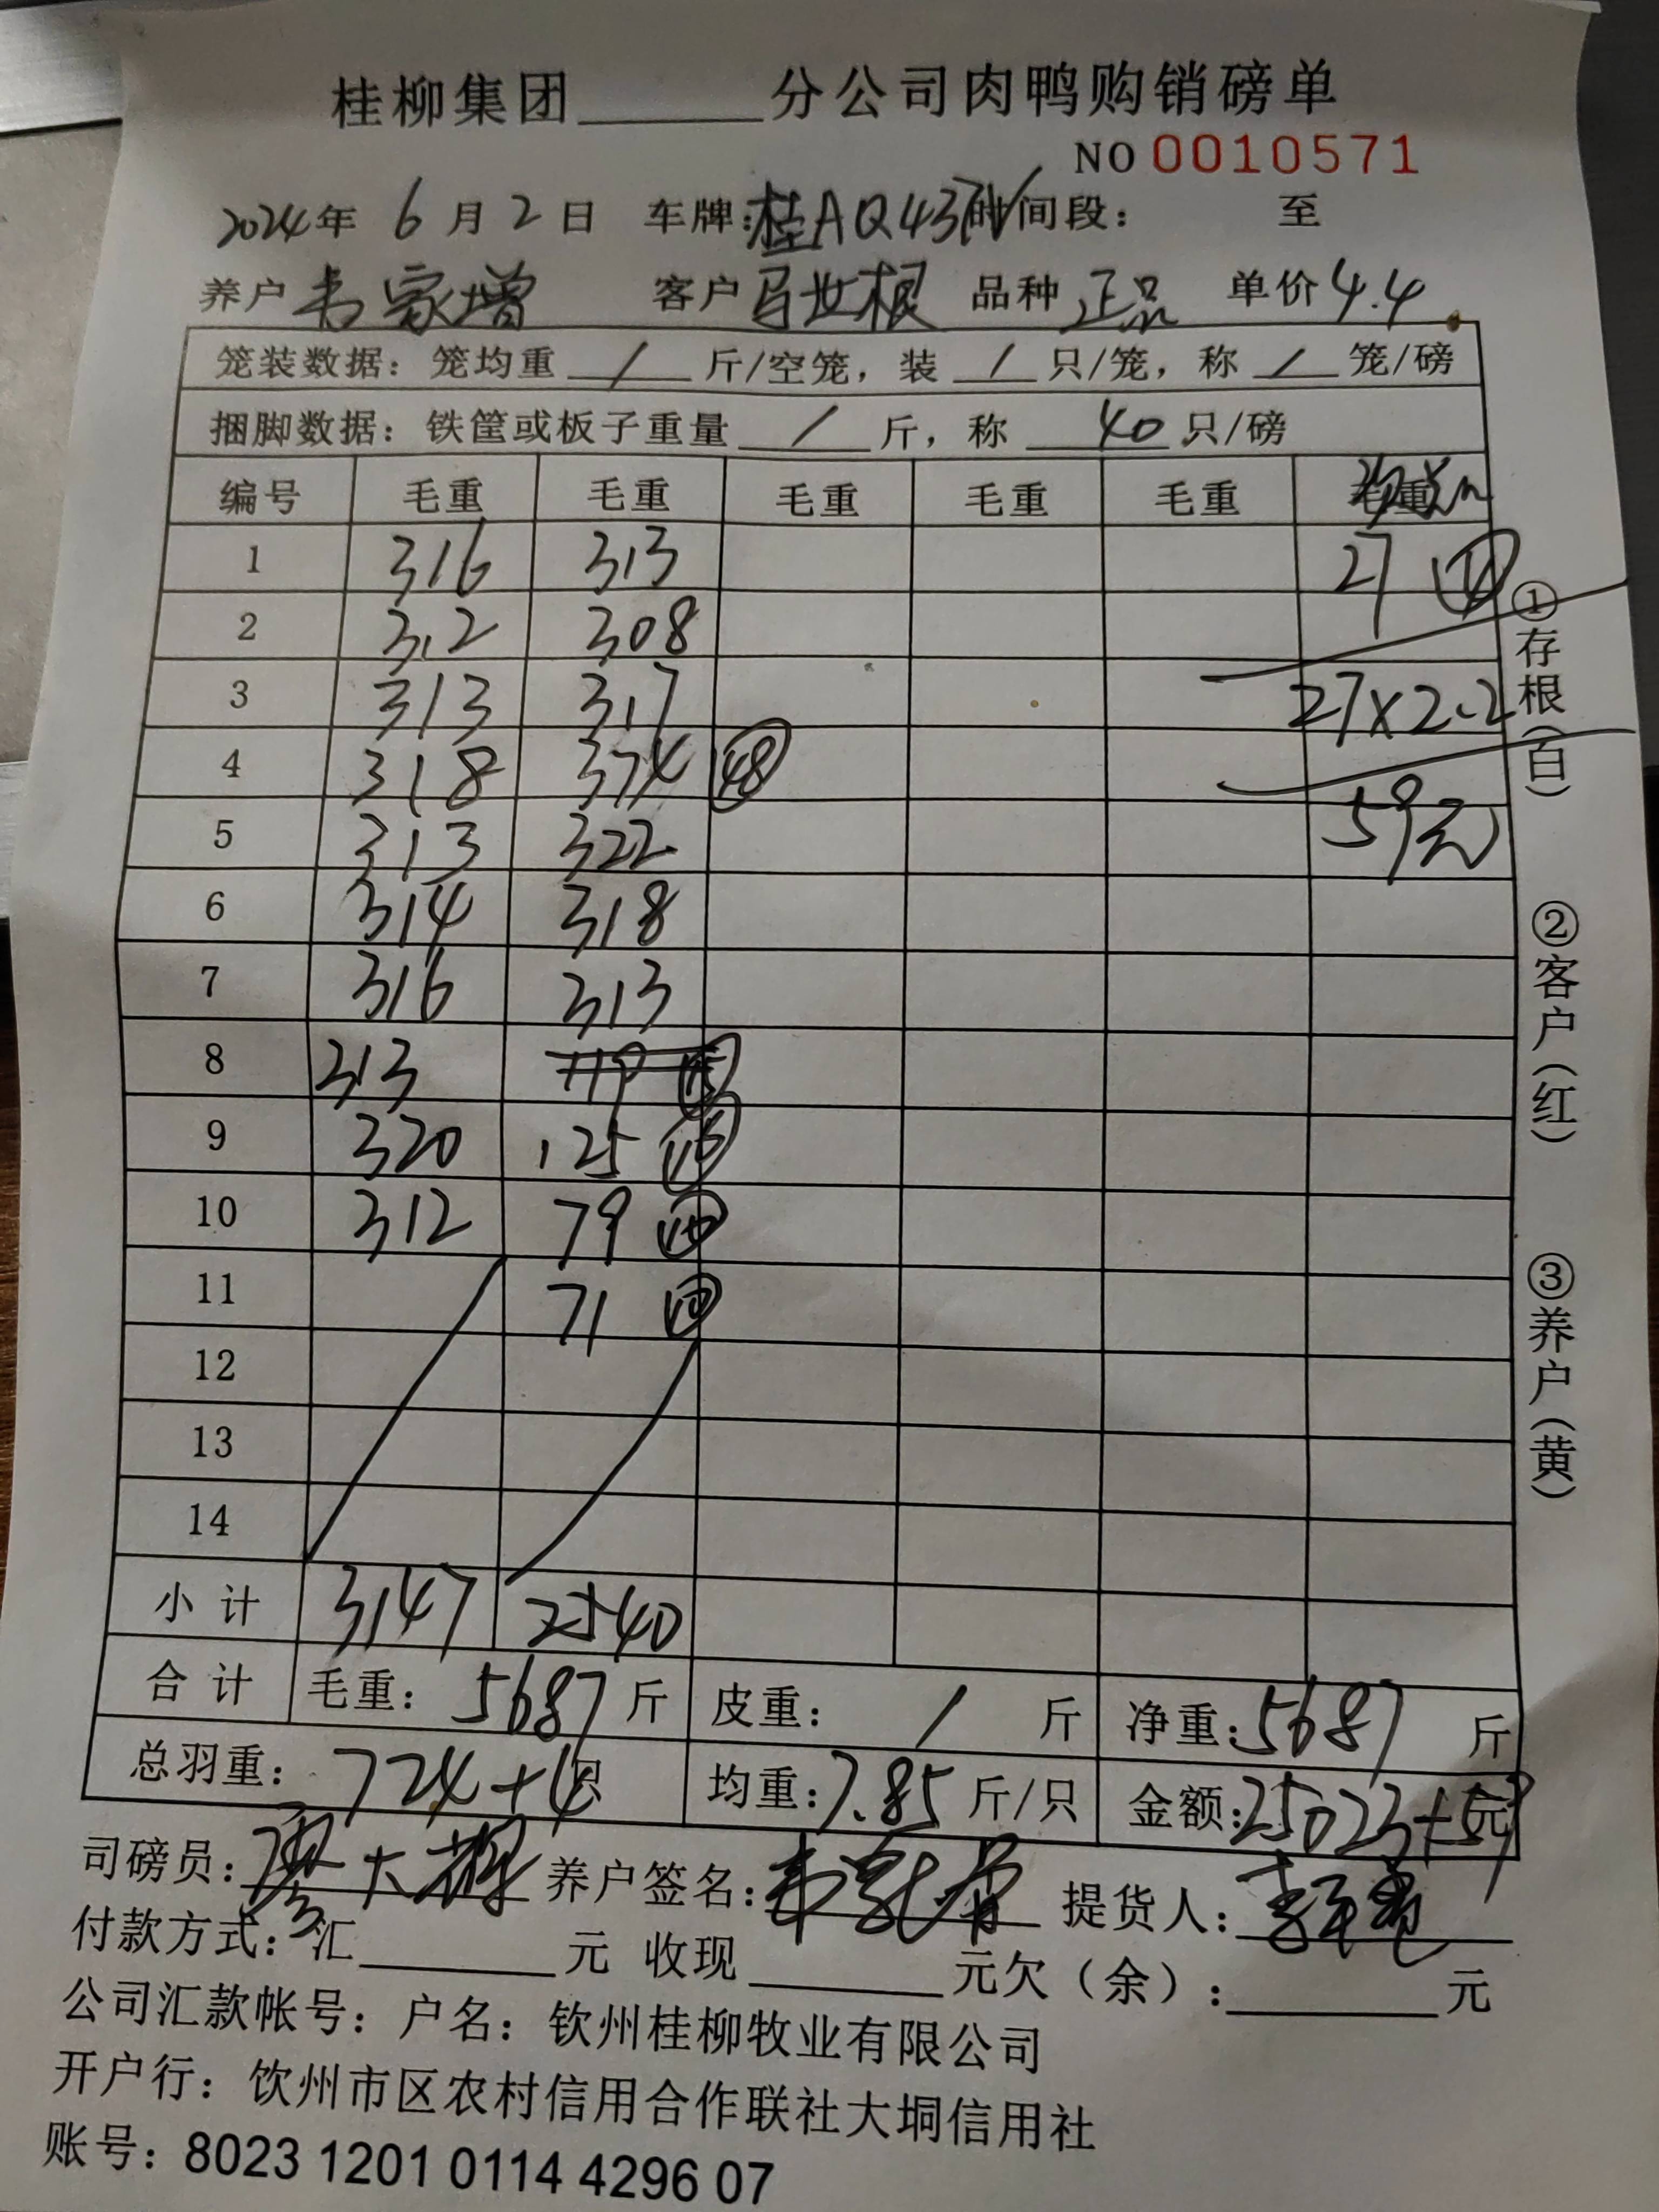 桂柳集团______分公司肉鸭购销磅单
NO 0010571
2024年 6月2日 车牌:桂AQ43 时间段: 至
养户 韦家增 客户 马世根 品种 正品 单价 4.4
笼装数据: 笼均重 / 斤/空笼, 装 / 只/笼, 称 / 笼/磅
捆脚数据: 铁筐或板子重量 / 斤, 称 40 只/磅
编号 毛重 毛重 毛重 毛重 毛重 毛重
1 316 313 27
2 312 308
3 313 317 27×2.2
4 318 374 48
5 313 322 59元
6 314 318
7 316 313
8 313 119 15
9 320 125 16
10 312 79 10
11 71 10
12
13
14
小计 3147 2540
合计 毛重: 5687 斤 皮重: / 斤 净重: 5687 斤
总羽重: 724+ 只 均重: 7.85 斤/只 金额: 25023+59元
司磅员: 养户签名: 韦家增 提货人:
付款方式: 汇______元 收现______元欠(余):______元
公司汇款帐号: 户名: 钦州桂柳牧业有限公司
开户行: 饮州市区农村信用合作联社大垌信用社
账号: 8023 1201 0114 4296 07
①存根(白)
②客户(红)
③养户(黄)